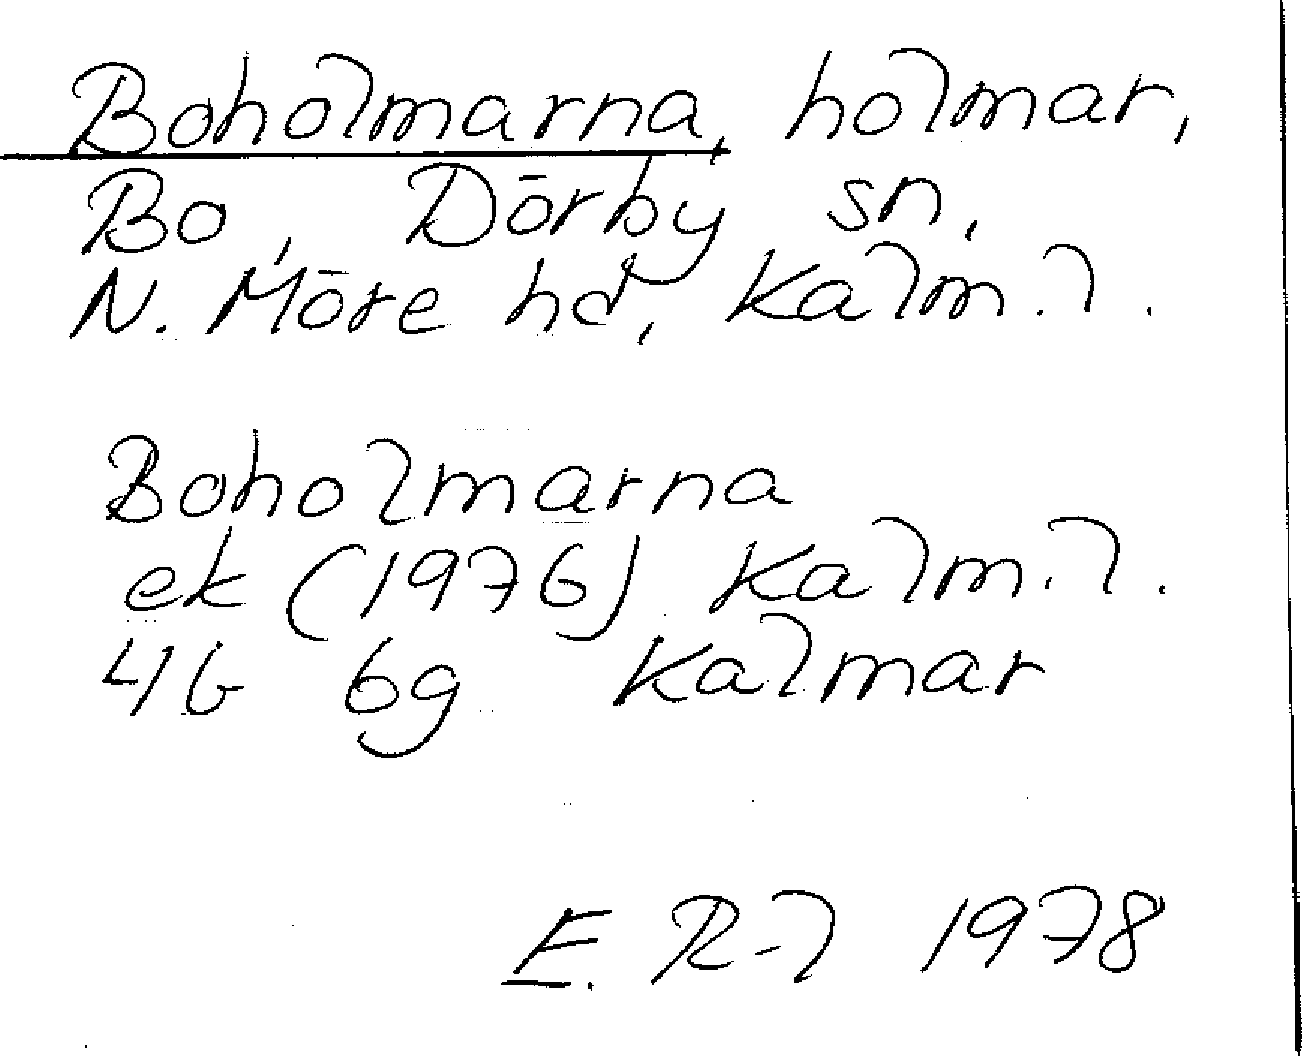 Boholmarna, holmar,
Bo, Dörby sn,
N. Möre hd, Kalm. l.
Boholmarna
ek (1976) Kalm. l.
4G 6g Kalmar
E. R-l 1978